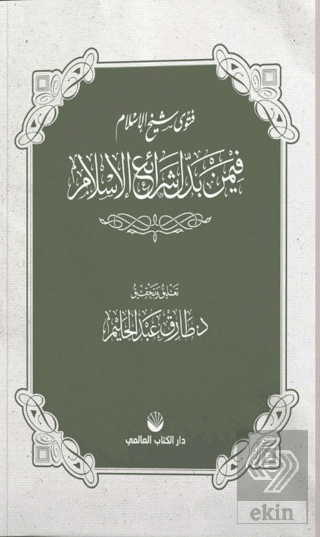 فتوى شيخ الإسلام
فيمن بدل شرائع الإسلام
تعليق وتحقيق
د. طارق عبد الحليم
دار الكتاب العالمي
ekin